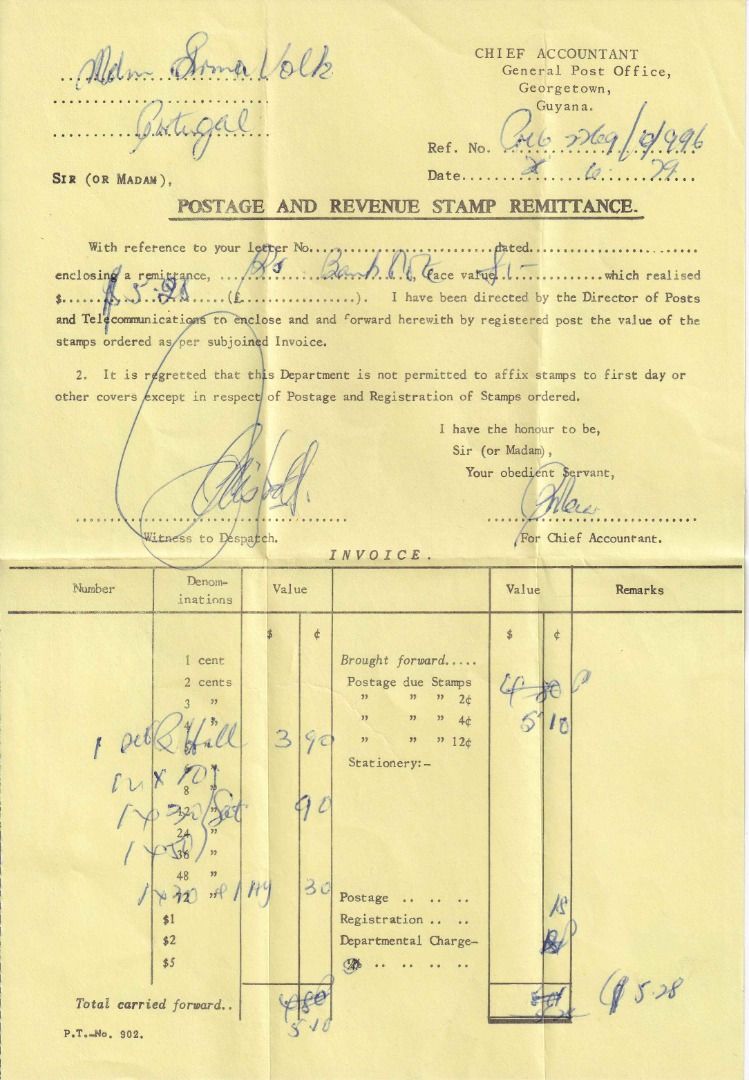 Mdm Irma Volk
CHIEF ACCOUNTANT
General Post Office,
Georgetown,
Guyana.
Portugal
Ref. No. 2269/
Date 79
SIR (OR MADAM),
POSTAGE AND REVENUE STAMP REMITTANCE.
With reference to your letter No. dated
enclosing a remittance, Bank Note face value $1- which realised
$ $5.28 (£ ). I have been directed by the Director of Posts
and Telecommunications to enclose and and forward herewith by registered post the value of the
stamps ordered as per subjoined Invoice.
2. It is regretted that this Department is not permitted to affix stamps to first day or
other covers except in respect of Postage and Registration of Stamps ordered.
I have the honour to be,
Sir (or Madam),
Your obedient Servant,
Witness to Despatch.
For Chief Accountant.
INVOICE.
Number Denom-inations Value Value Remarks
$ ¢ $ ¢
1 cent Brought forward.....
2 cents Postage due Stamps 4 80
3 " " " " 2¢
4 " " " " 4¢ 5 10
1 set R Hall 3 90 " " " 12¢
Stationery:-
8 "
12 " Set 90
24 "
1 x 50 36 "
48 "
1 x 30 72 " 30
Postage .. .. .. 18
$1 Registration .. ..
$2 Departmental Charge-
$5 .. .. .. ..
Total carried forward.. 4 80 $5.28
5 10
P.T.-No. 902.